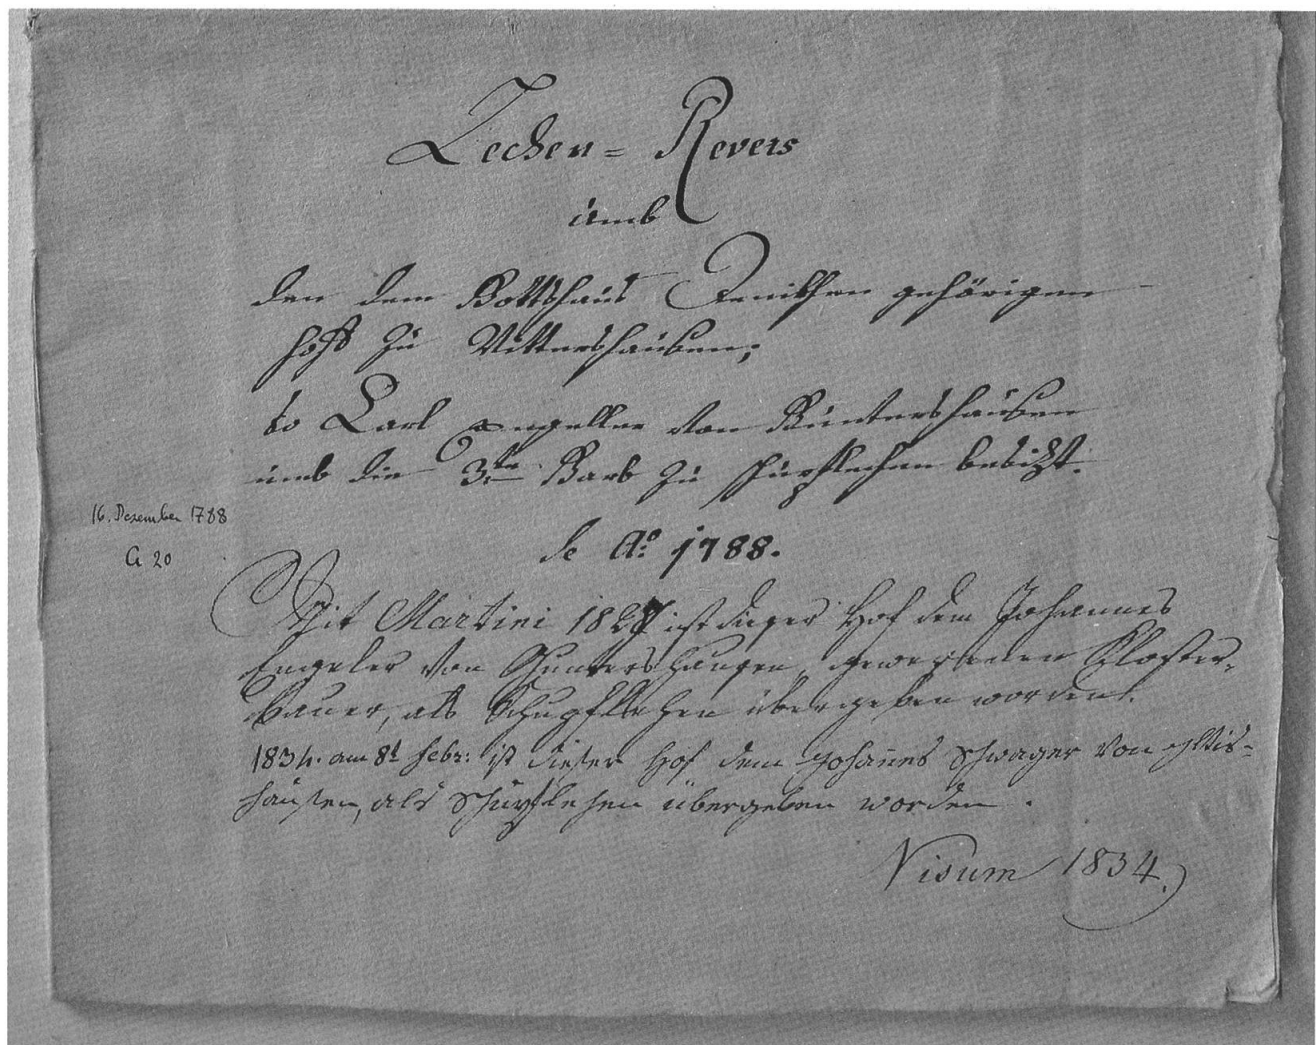 Lechen = Revers
umb
den dem Gottshaus Tenikhen gehörigen
hoff zu Wittershausen;
so Carl Engeller von Guntershausen
umb die 3te Garb zu schupflechen besizt.
de Ao: 1788.
16. Dezember 1788
G 20
Mit Martini 1827 ist dieser Hof dem Johannes
Engeler von Guntershausen, gewesenen Kloster-
bauer, als Schupflehen übergeben worden.
1834. am 8t febr: ist dieser Hof dem Johanes Schwager von
hausen, als Schupflehen übergeben worden.
Visum 1834.